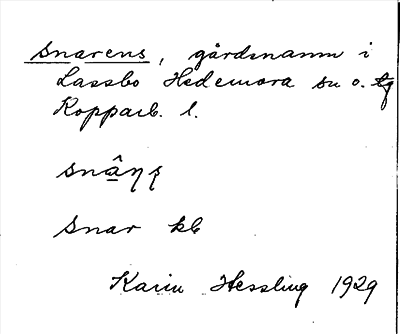 Snarens, gårdsnamn i
Lassbo Hedemora sn o. tg
Kopparb. l.
snâŋʂ
Snar kb
Karin Hessling 1929